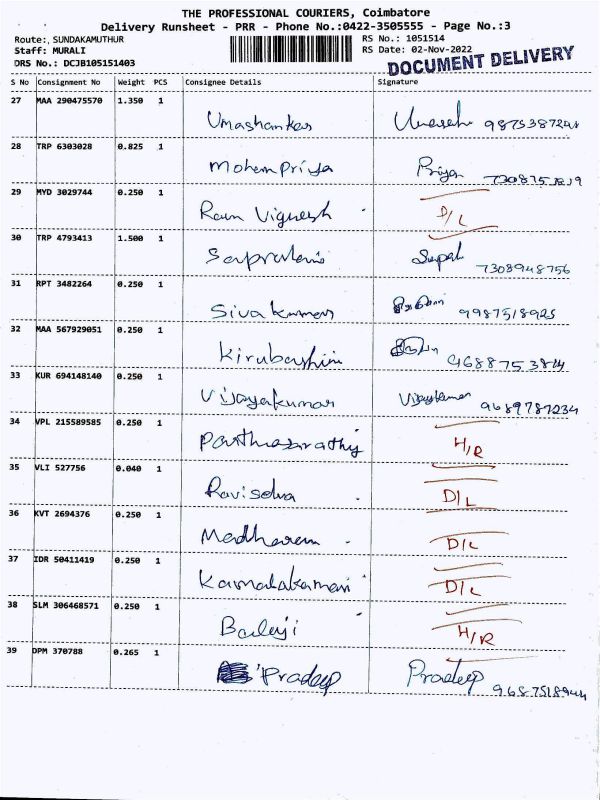 THE PROFESSIONAL COURIERS, Coimbatore
Delivery Runsheet - PRR - Phone No.:0422-3505555 - Page No.:3
Route:, SUNDAKAMUTHUR RS No.: 1051514
Staff: MURALI RS Date: 02-Nov-2022
DRS No.: DCJB105151403 DOCUMENT DELIVERY
S No Consignment No Weight PCS Consignee Details Signature
27 MAA 290475570 1.350 1
Umashankar
28 TRP 6303028 0.825 1
Mohempriya Priya
29 MYD 3029744 0.250 1
Ram Vignesh D/L
30 TRP 4793413 1.500 1
7308948756
31 RPT 3482264 0.250 1
Sivakumar 9987518925
32 MAA 567929051 0.250 1
Kirubashini
33 KUR 694148140 0.250 1
Vijayakumar Vijaykumar 9689787234
34 VPL 215589585 0.250 1
Parthasarathy H/R
35 VLI 527756 0.040 1
Raviselva D/L
36 KVT 2694376 0.250 1
D/L
37 IDR 50411419 0.250 1
D/L
38 SLM 306468571 0.250 1
Balaji H/R
39 DPM 370788 0.265 1
Pradeep Pradeep